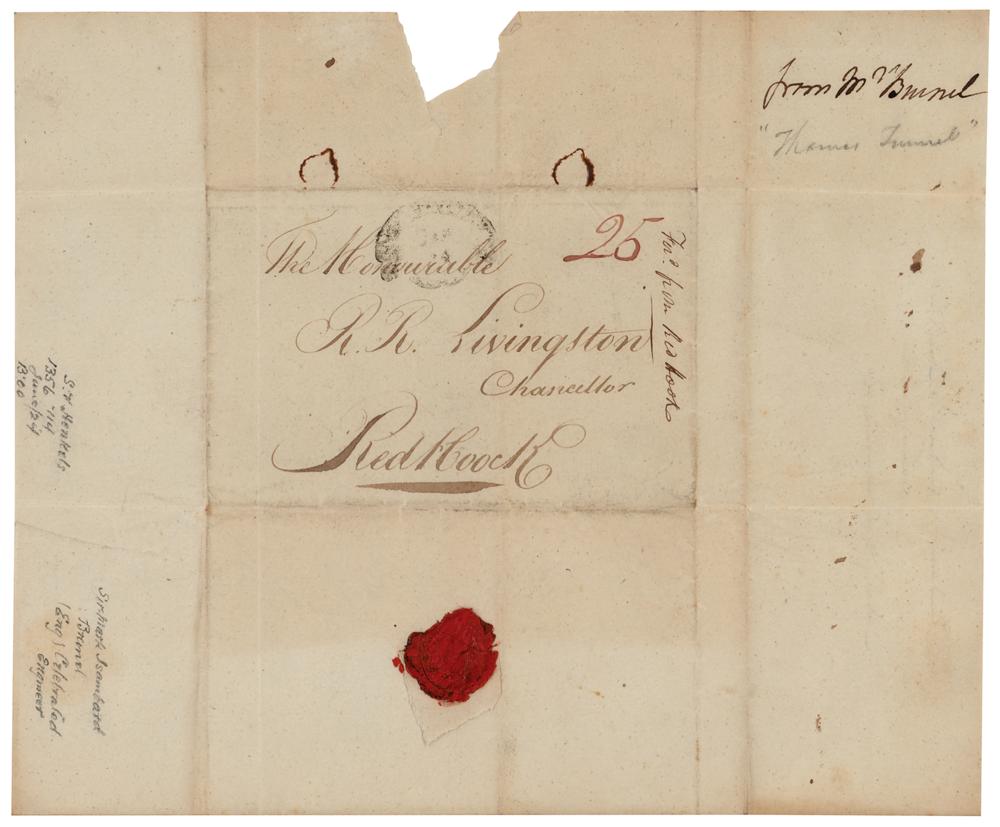 from Mr Brunel
"Thames Tunnel"
The Honourable
25
R. R. Livingston
Chancellor
Red Hoock
S. V Henkels
1356 '114
June/24
13.00
Sir Mark Isambard
Brunel
(Eng) Celebrated
Engineer